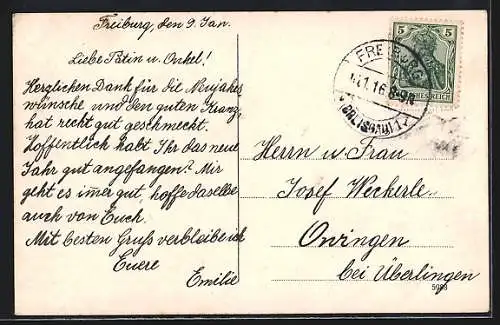 Freiburg, den 9. Jan.
Liebe Patin u. Onkel!
Herzlichen Dank für die Neujahrs
wünsche und den guten Kranz,
hat recht gut geschmeckt.
Hoffentlich habt Ihr das neue
Jahr gut angefangen? Mir
geht es imer gut, hoffe dasselbe
auch von Euch.
Mit besten Gruss verbleibe ich
Euere
Emilie
5
5
FREIBURG
1.16.8-9N
(BREISGAU) 1
HES REICH
Herrn u. Frau
Josef Weckerle
Owingen
bei Überlingen
5098